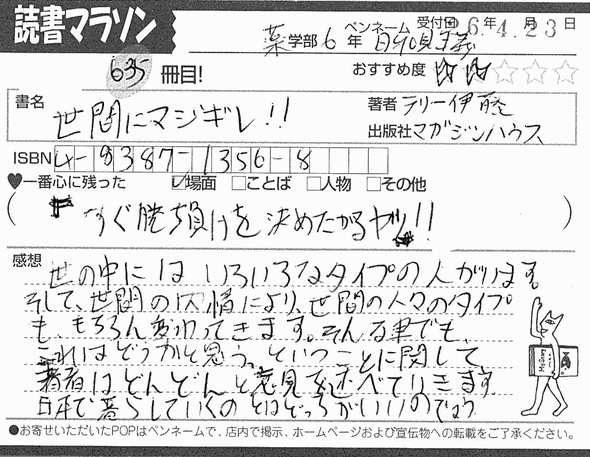 読書マラソン
受付日 6年4月23日
薬学部6年 ペンネーム 自煩主義
635冊目!
おすすめ度 ☆☆☆☆☆
書名
世間にマジギレ!!
著者 テリー伊藤
出版社 マガジンハウス
ISBN 4-8387-1356-8
♥一番心に残った ☑場面 □ことば □人物 □その他
(すぐ勝ち負けを決めたがるヤツ!!)
感想
世の中にはいろいろなタイプの人がいます。
そして、世間の内情により、世間の人々のタイプ
も、もちろん変わってきます。そんな中でも、
これはどうかと思う、ということに関して
著者はどんどんと意見を述べていきます
日本で暮らしていくのとはどっちがいいのでしょう
●お寄せいただいたPOPはペンネームで、店内で掲示、ホームページおよび宣伝物への転載をご了承ください。